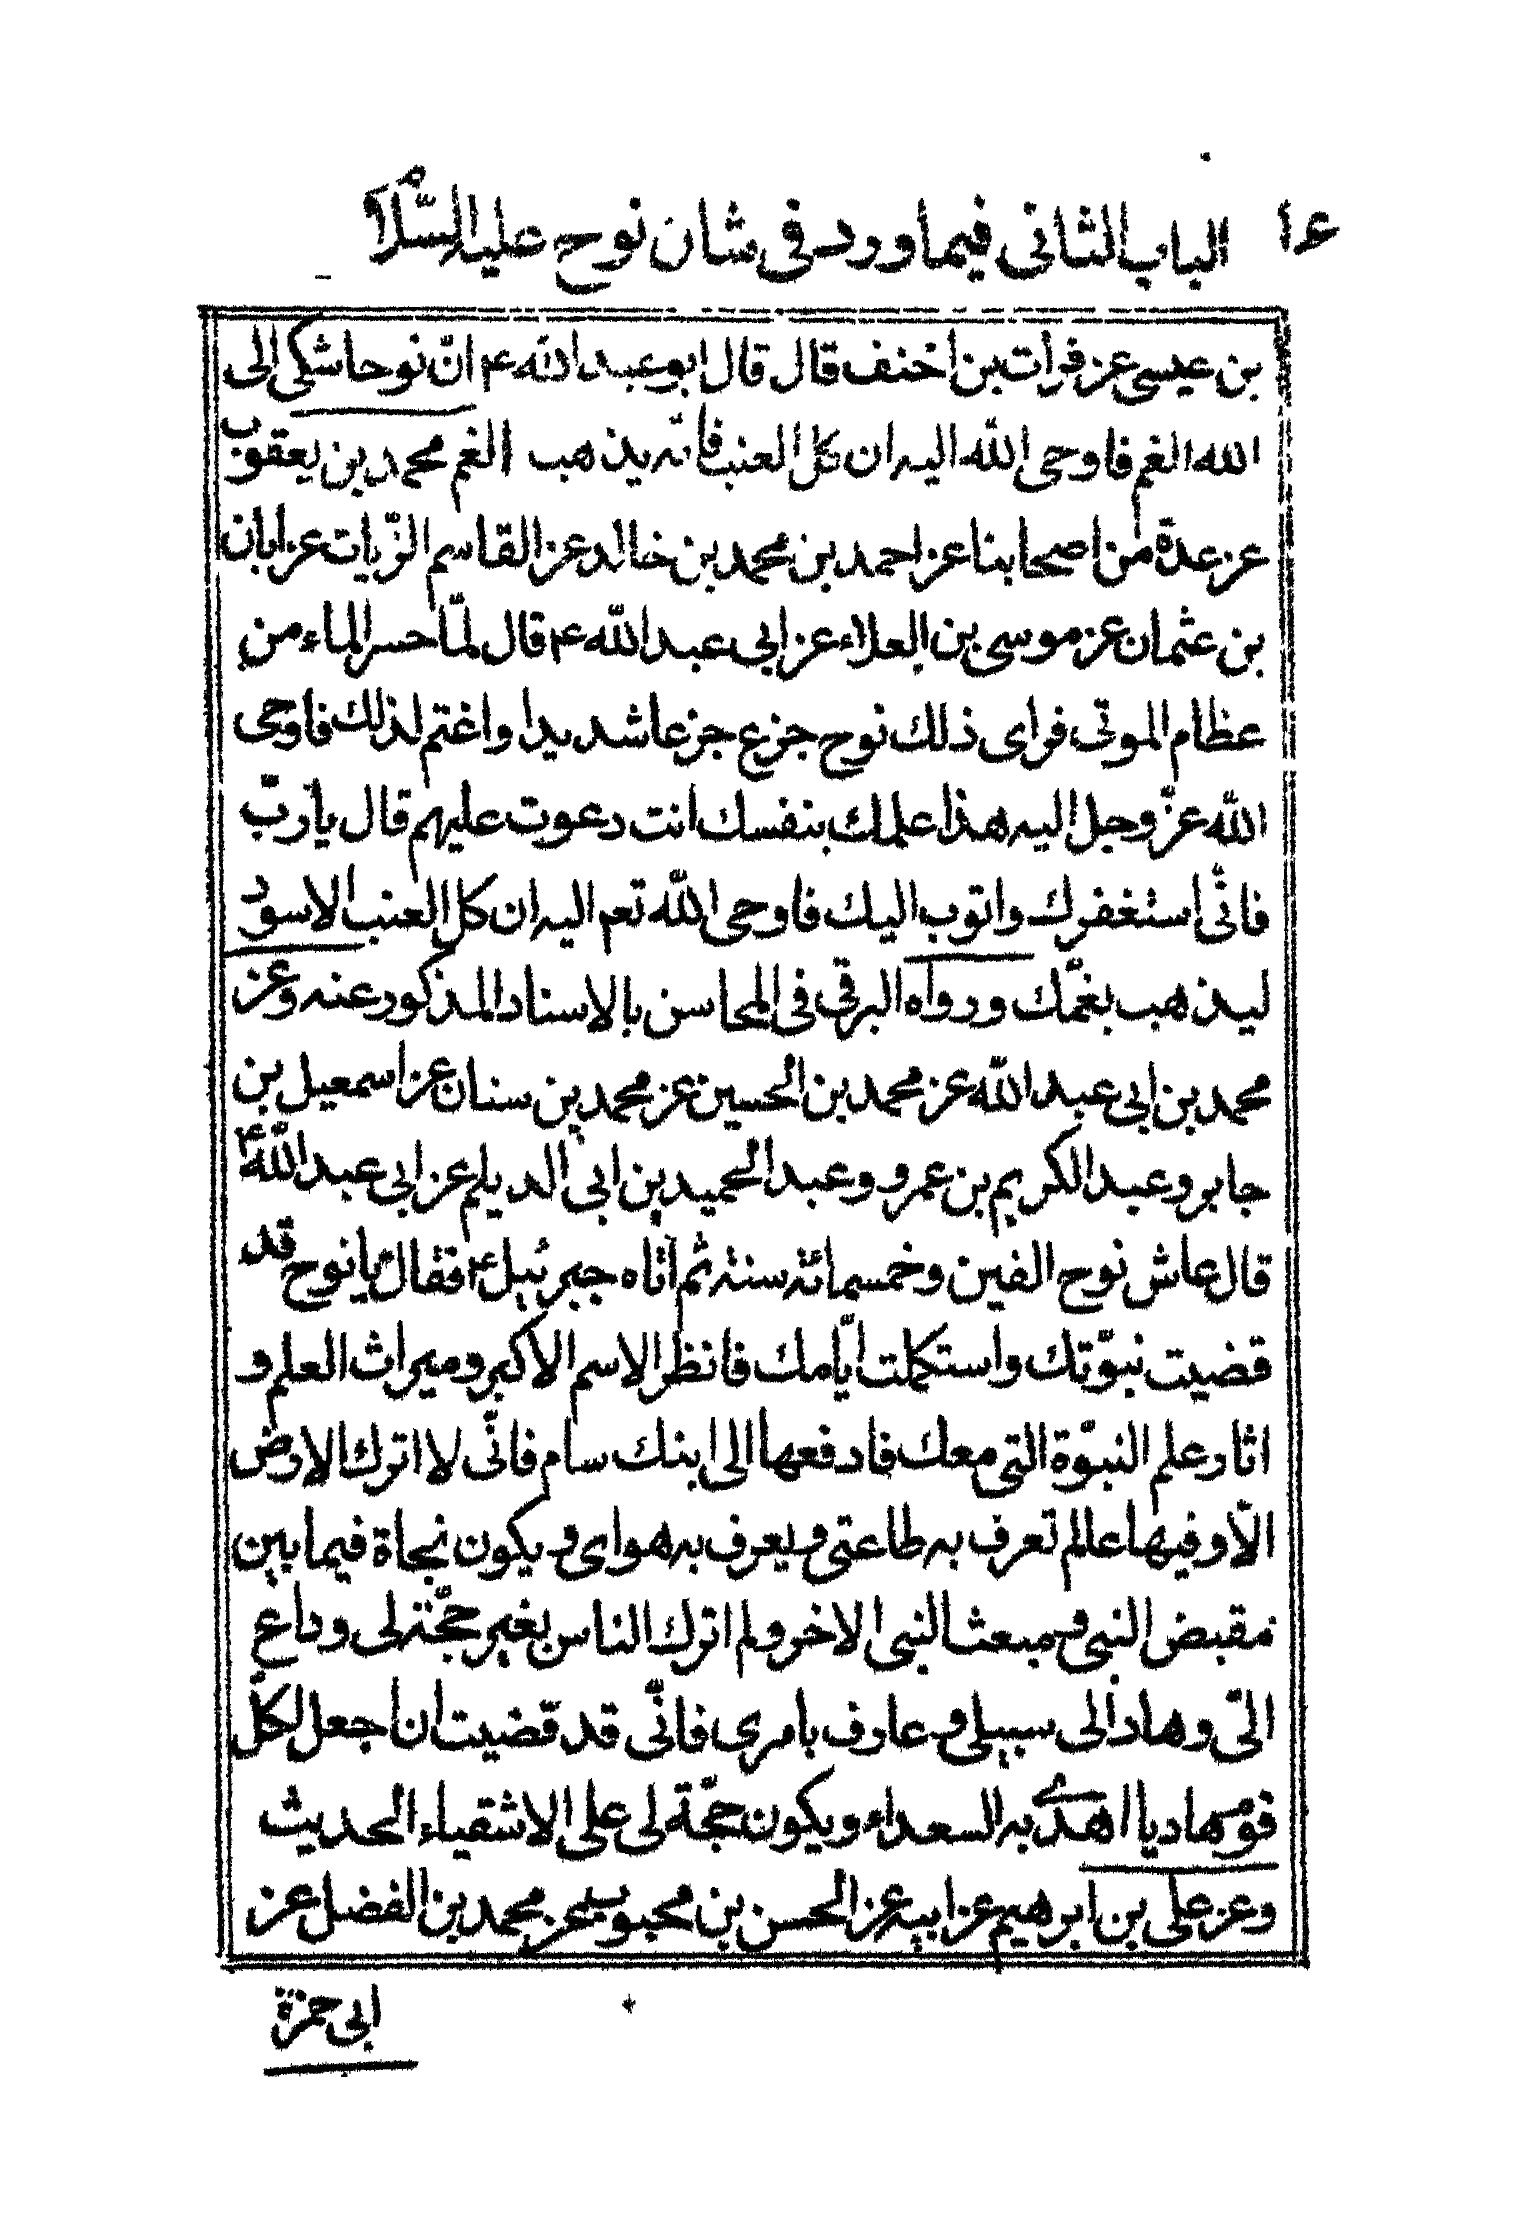 الباب الثانی فیما ورد فی شان نوح علیه السّلام ۱۶
بن عیسی عن فرات بن اخنف قال قال ابو عبد الله ع انّ نوحا شکی الی
الله الغم فاوحی الله الیه ان کل العنب فانّه یذهب الغم محمد بن یعقوب
عن عدة من اصحابنا عن احمد بن محمد بن خالد عن القاسم الزّیات عن ابان
بن عثمان عن موسی بن العلاء عن ابی عبد الله ع قال لمّا حسر الماء من
عظام الموتی فرای ذلك نوح جزع جزعا شدیدا واغتم لذلك فاوحی
الله عزّ وجل الیه هذا عملك بنفسك انت دعوت علیهم قال یا ربّ
فانّی استغفرك واتوب الیك فاوحی الله تعم الیه ان کل العنب الاسود
لیذهب بغمّك ورواه البرقی فی المحاسن بالاسناد المذکور عنه وعن
محمد بن ابی عبد الله عن محمد بن الحسین عن محمد بن سنان عن اسمعیل بن
جابر وعبد الکریم بن عمرو وعبد الحمید بن ابی الدیلم عن ابی عبد الله ع
قال عاش نوح الفین وخمسمائة سنة ثم اتاه جبرئیل ع فقال یا نوح قد
قضیت نبوّتك واستکملت ایّامك فانظر الاسم الاکبر ومیراث العلم و
اثار علم النبوّة التی معك فادفعها الی ابنك سام فانّی لا اترك الارض
الّا وفیها عالم تعرف به طاعتی ویعرف به هوای ویکون نجاة فیما بین
مقبض النبی ومبعث النبی الاخر ولم اترك الناس بغیر حجّة لی وداع
الیّ وهاد الی سبیلی وعارف بامری فانّی قد قضیت ان اجعل لکلّ
قوم هادیا اهدی به السعداء ویکون حجّة لی علی الاشقیاء الحدیث
وعن علی بن ابرهیم عن ابیه عن الحسن بن محبوب عن محمد بن الفضل عن
ابی حمزة